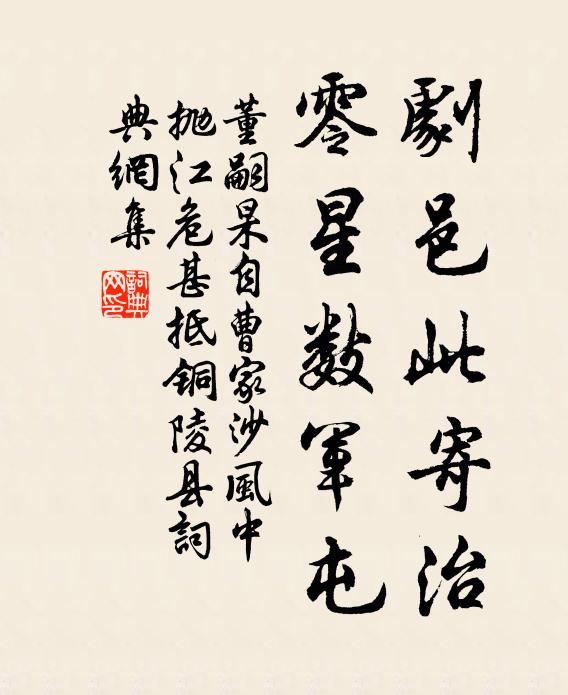 劇邑此寄治
零星数軍屯
董嗣杲自曹家沙風中
抛江危甚抵铜陵县詞
典網集
詞典网印